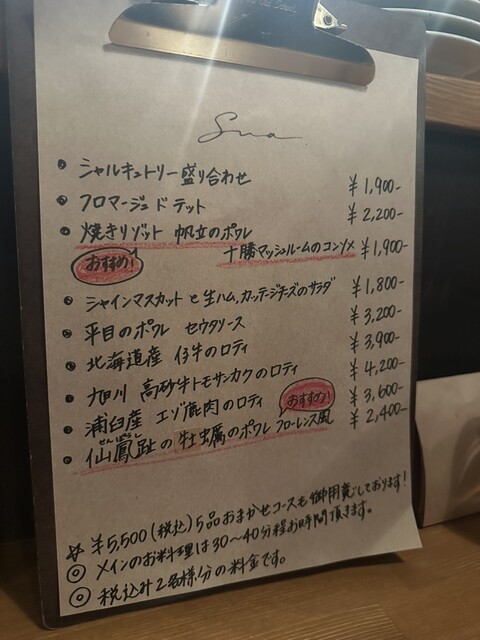 Sua
• シャルキュトリー盛り合わせ ¥1,900-
• フロマージュ ド テット ¥2,200-
• 焼きリゾット 帆立のポワレ
十勝マッシュルームのコンソメ ¥1,900-
おすすめ!
• シャインマスカットと生ハム、カッテージチーズのサラダ ¥1,800-
• 平目のポワレ セウタソース ¥3,200-
• 北海道産 仔牛のロティ ¥3,900-
• 旭川 高砂牛トモサンカクのロティ ¥4,200-
• 浦臼産 エゾ鹿肉のロティ ¥3,600-
おすすめ!
せんぽうし
• 仙鳳趾の牡蠣のポワレ フローレンス風 ¥2,400-
※ ¥5,500(税込) 5品おまかせコースも御用意しております!
◎ メインのお料理は30〜40分程お時間頂きます。
◎ 税込み2名様分の料金です。